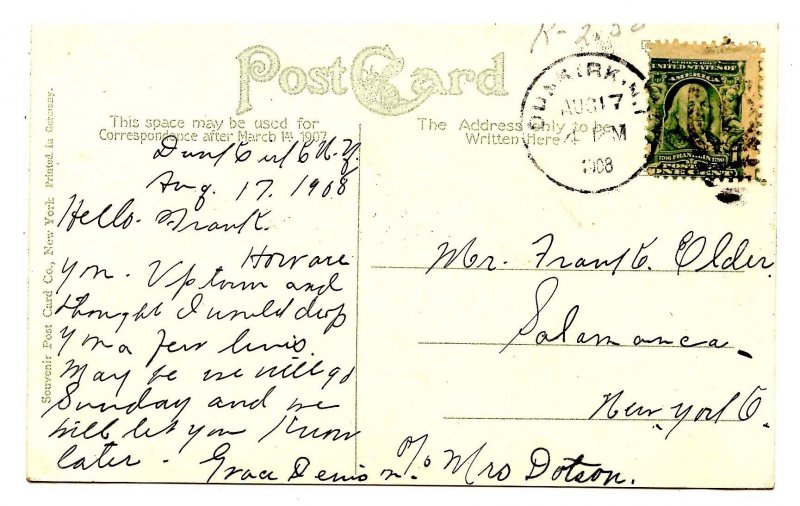 K-2,50
Post Card
This space may be used for
Correspondence after March 1st 1907
The Address only to be
Written Here
DUNKIRK, N.Y.
AUG 17
PM
1908
SERIES 1902
UNITED STATES OF
AMERICA
1706 FRANKLIN 1790
POSTAGE
ONE CENT
Souvenir Post Card Co., New York Printed in Germany.
Dunkirk N.Y.
Aug. 17. 1908
Hello. Frank.
How are
you. Uptown and
thought I would drop
you a few lines.
May be we will go
Sunday and we
will let you know
later. Grace Denison.
Mr. Frank. Older.
Salamanca.
New York.
c/o Mrs Dotson.